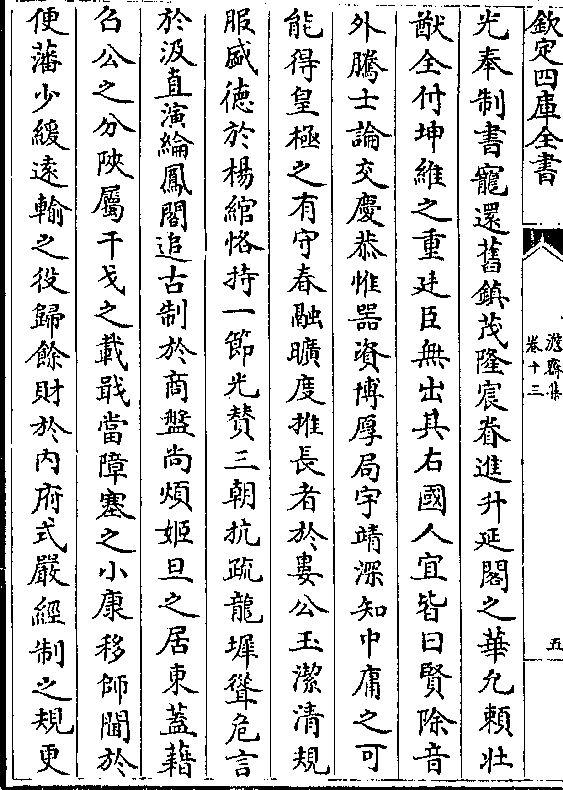 欽定四庫全書
澹齋集
卷十三
五
光奉制書寵還舊鎮茂隆宸眷進升延閣之華允頼壯
猷全付坤維之重廷臣無出其右國人宜皆曰賢除音
外騰士論交慶恭惟器資博厚局宇靖深知中庸之可
能得皇極之有守春融曠度推長者於婁公玉潔清規
服盛德於楊綰恪持一節光賛三朝抗疏龍墀聳危言
於汲直演綸鳳閣追古制於商盤尚煩姬旦之居東蓋藉
召公之分陜屬干戈之載戢當障塞之小康移師閫於
便藩少緩逺輸之役歸餘財於内府式嚴經制之規更